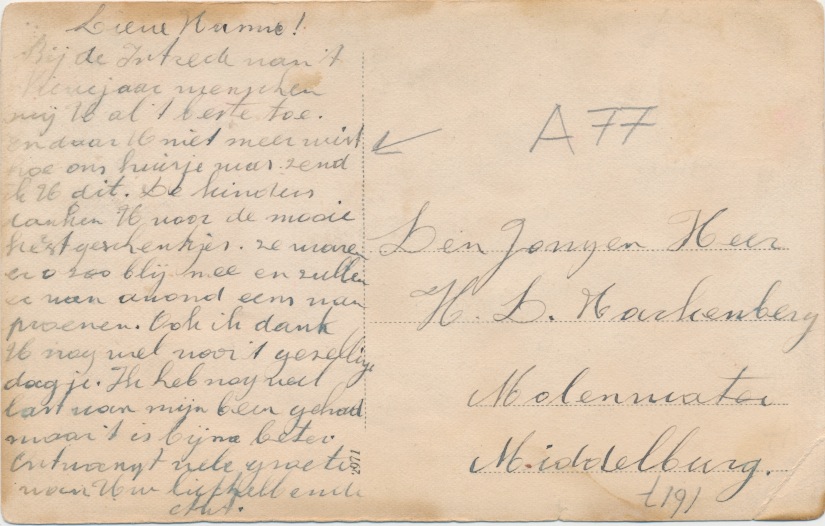 Lieve Hunne!
Bij de Intrede van 't
Nieuwjaar wenschen
wij U al 't beste toe.
en daar U niet meer wist
hoe ons huisje was zend
ik U dit. De kinders
danken U voor de mooie
kerstgeschenkjes. ze waren
er o zoo blij mee en zullen
er van avond eens van
proeven. Ook ik dank
U nog wel voor 't gezellige
dagje. Ik heb nog veel
last van mijn been gehad
maar 't is bijna beter
Ontvangt vele groeten
van Uw liefhebbende
A77
Den Jongen Heer
H. D. Hackenberg
Molenwater
Middelburg.
t191
2971